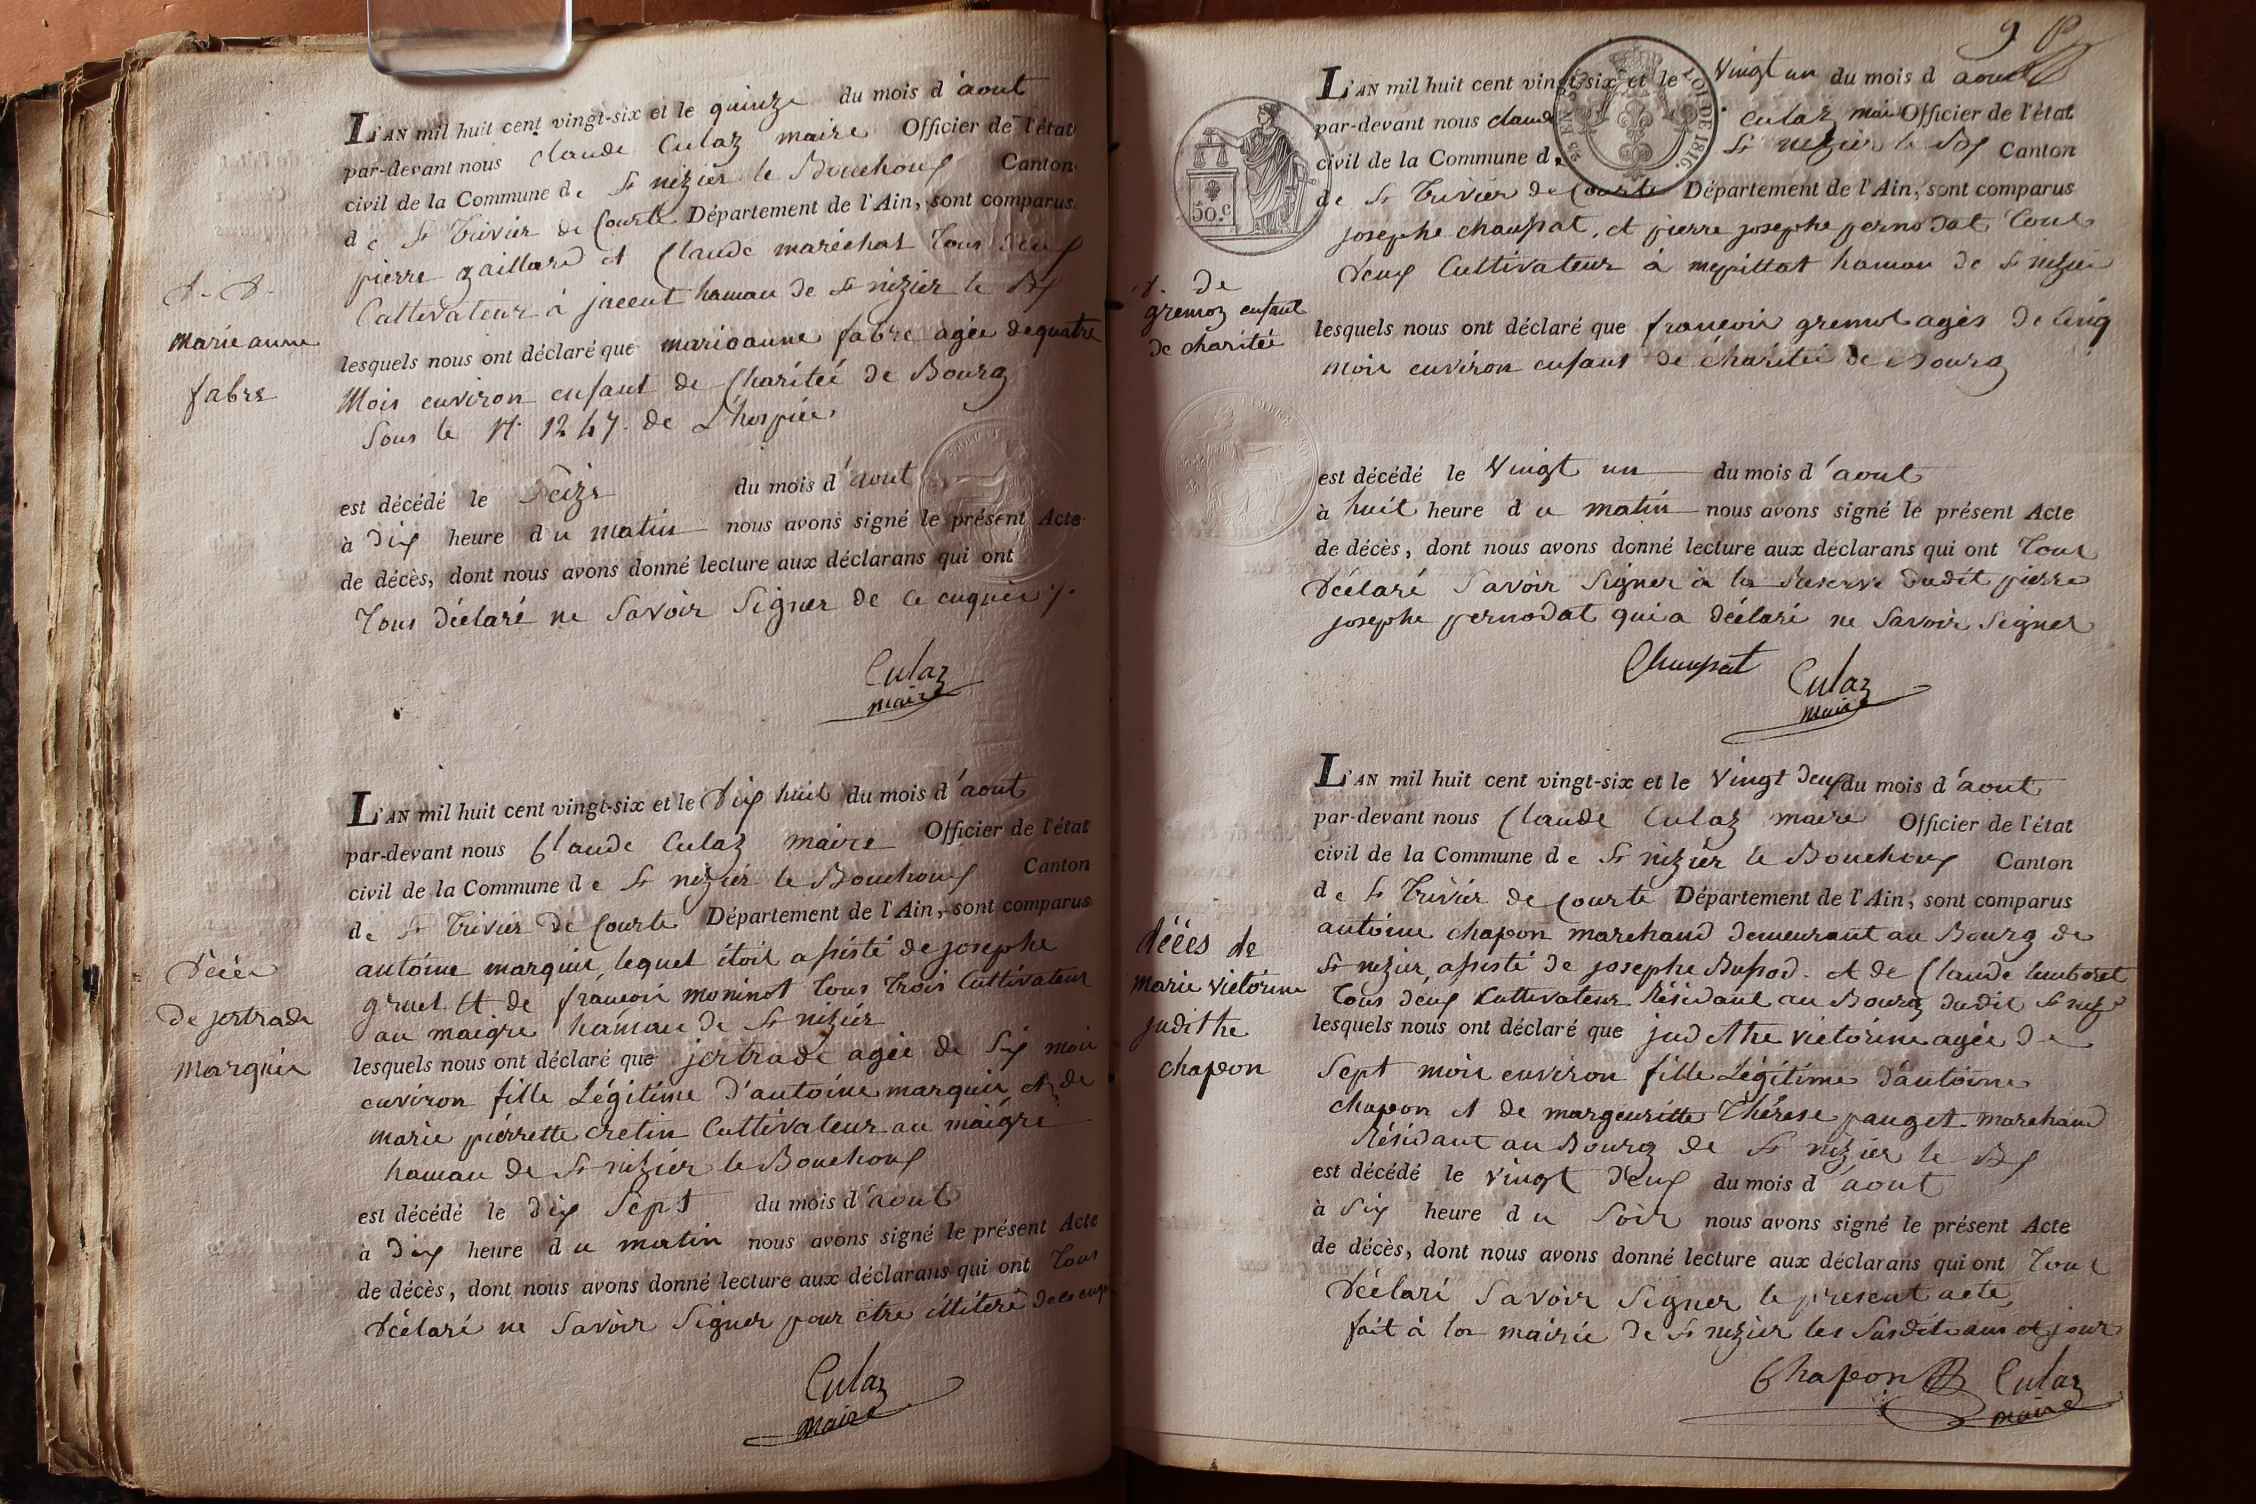 L'AN mil huit cent vingt-six et le quinze du mois d'aout
par-devant nous claude Culaz maire Officier de l'état
civil de la Commune de St nizier le Bouchoux Canton
de St Trivier de Courte Département de l'Ain, sont comparus
pierre gaillard et Claude maréchal tous deux
Cultivateur à jacent hamau de St nizier le Bx
D. D.
marie anne
fabre
lesquels nous ont déclaré que marioanne fabre agée de quatre
Mois environ enfant de Charitéé de Bourg
Sous le N. 1247. de L'hospice
est décédé le Seize du mois d'aout
à dix heure du matin nous avons signé le présent Acte
de décès, dont nous avons donné lecture aux déclarans qui ont
tous déclaré ne Savoir Signer de ce enquis
Culaz
maire
L'AN mil huit cent vingt-six et le Dix huit du mois d'aout
par-devant nous Claude Culaz maire Officier de l'état
civil de la Commune de St nizier le Bouchoux Canton
de St Trivier de Courte Département de l'Ain, sont comparus
antoine marquis, lequel étoit assisté de josephe
gruel et de françois moninot tous trois Cultivateur
au maigre hamau de St nizier
Décés
de jertrade
Marquis
lesquels nous ont déclaré que jertrade agée de Six mois
environ fille Légitime d'antoine marquis et de
marie pierrette cretin Cultivateur au maigre
hamau de St nizier le Bouchoux
est décédé le dix Sept du mois d'aout
à Dix heure du matin nous avons signé le présent Acte
de décès, dont nous avons donné lecture aux déclarans qui ont tous
déclaré ne Savoir Signer pour être illiteré de ce
Culaz
maire
9
L'AN mil huit cent vingt-six et le Vingt un du mois d aout
par-devant nous claude Culaz maire Officier de l'état
civil de la Commune d St nizier le Bx Canton
de St Trivier de Courte Département de l'Ain, sont comparus
LOI DE 1816.
50.c
josephe chaussat, et pierre josephe pernodat tous
deux Cultivateur à mépillat hamau de St nizier
D. de
gremoz enfant
de charitéé
lesquels nous ont déclaré que françois gremot agés de Cinq
mois environ enfant de charitéé de Bourg
est décédé le Vingt un du mois d'aout
à huit heure du matin nous avons signé le présent Acte
de décès, dont nous avons donné lecture aux déclarans qui ont tous
déclaré Savoir Signer à la Reserve dudit pierre
josephe pernodat qui a déclaré ne Savoir Signer
Chaussat Culaz
maire
L'AN mil huit cent vingt-six et le Vingt deux du mois d'aout
par-devant nous Claude Culaz maire Officier de l'état
civil de la Commune de St nizier le Bouchoux Canton
de St Trivier de Courte Département de l'Ain, sont comparus
antoine chapon marchand demeurant au Bourg de
St nizier, assisté de josephe Bussod. et de Claude
tous deux Cultivateur Résidant au Bourg dudit St
décés de
marie victorine
judithe
chapon
lesquels nous ont déclaré que judithe victorine agée de
Sept mois environ fille Légitime d'antoine
chapon et de margeuritte Thérese pauget marchand
Résidant au Bourg de St nizier le Bx
est décédé le vingt deux du mois d'aout
à Six heure du Soir nous avons signé le présent Acte
de décès, dont nous avons donné lecture aux déclarans qui ont tous
déclaré Savoir Signer le present acte,
fait à la mairie de St nizier les Susdits ans et jour
Chapon Culaz
maire